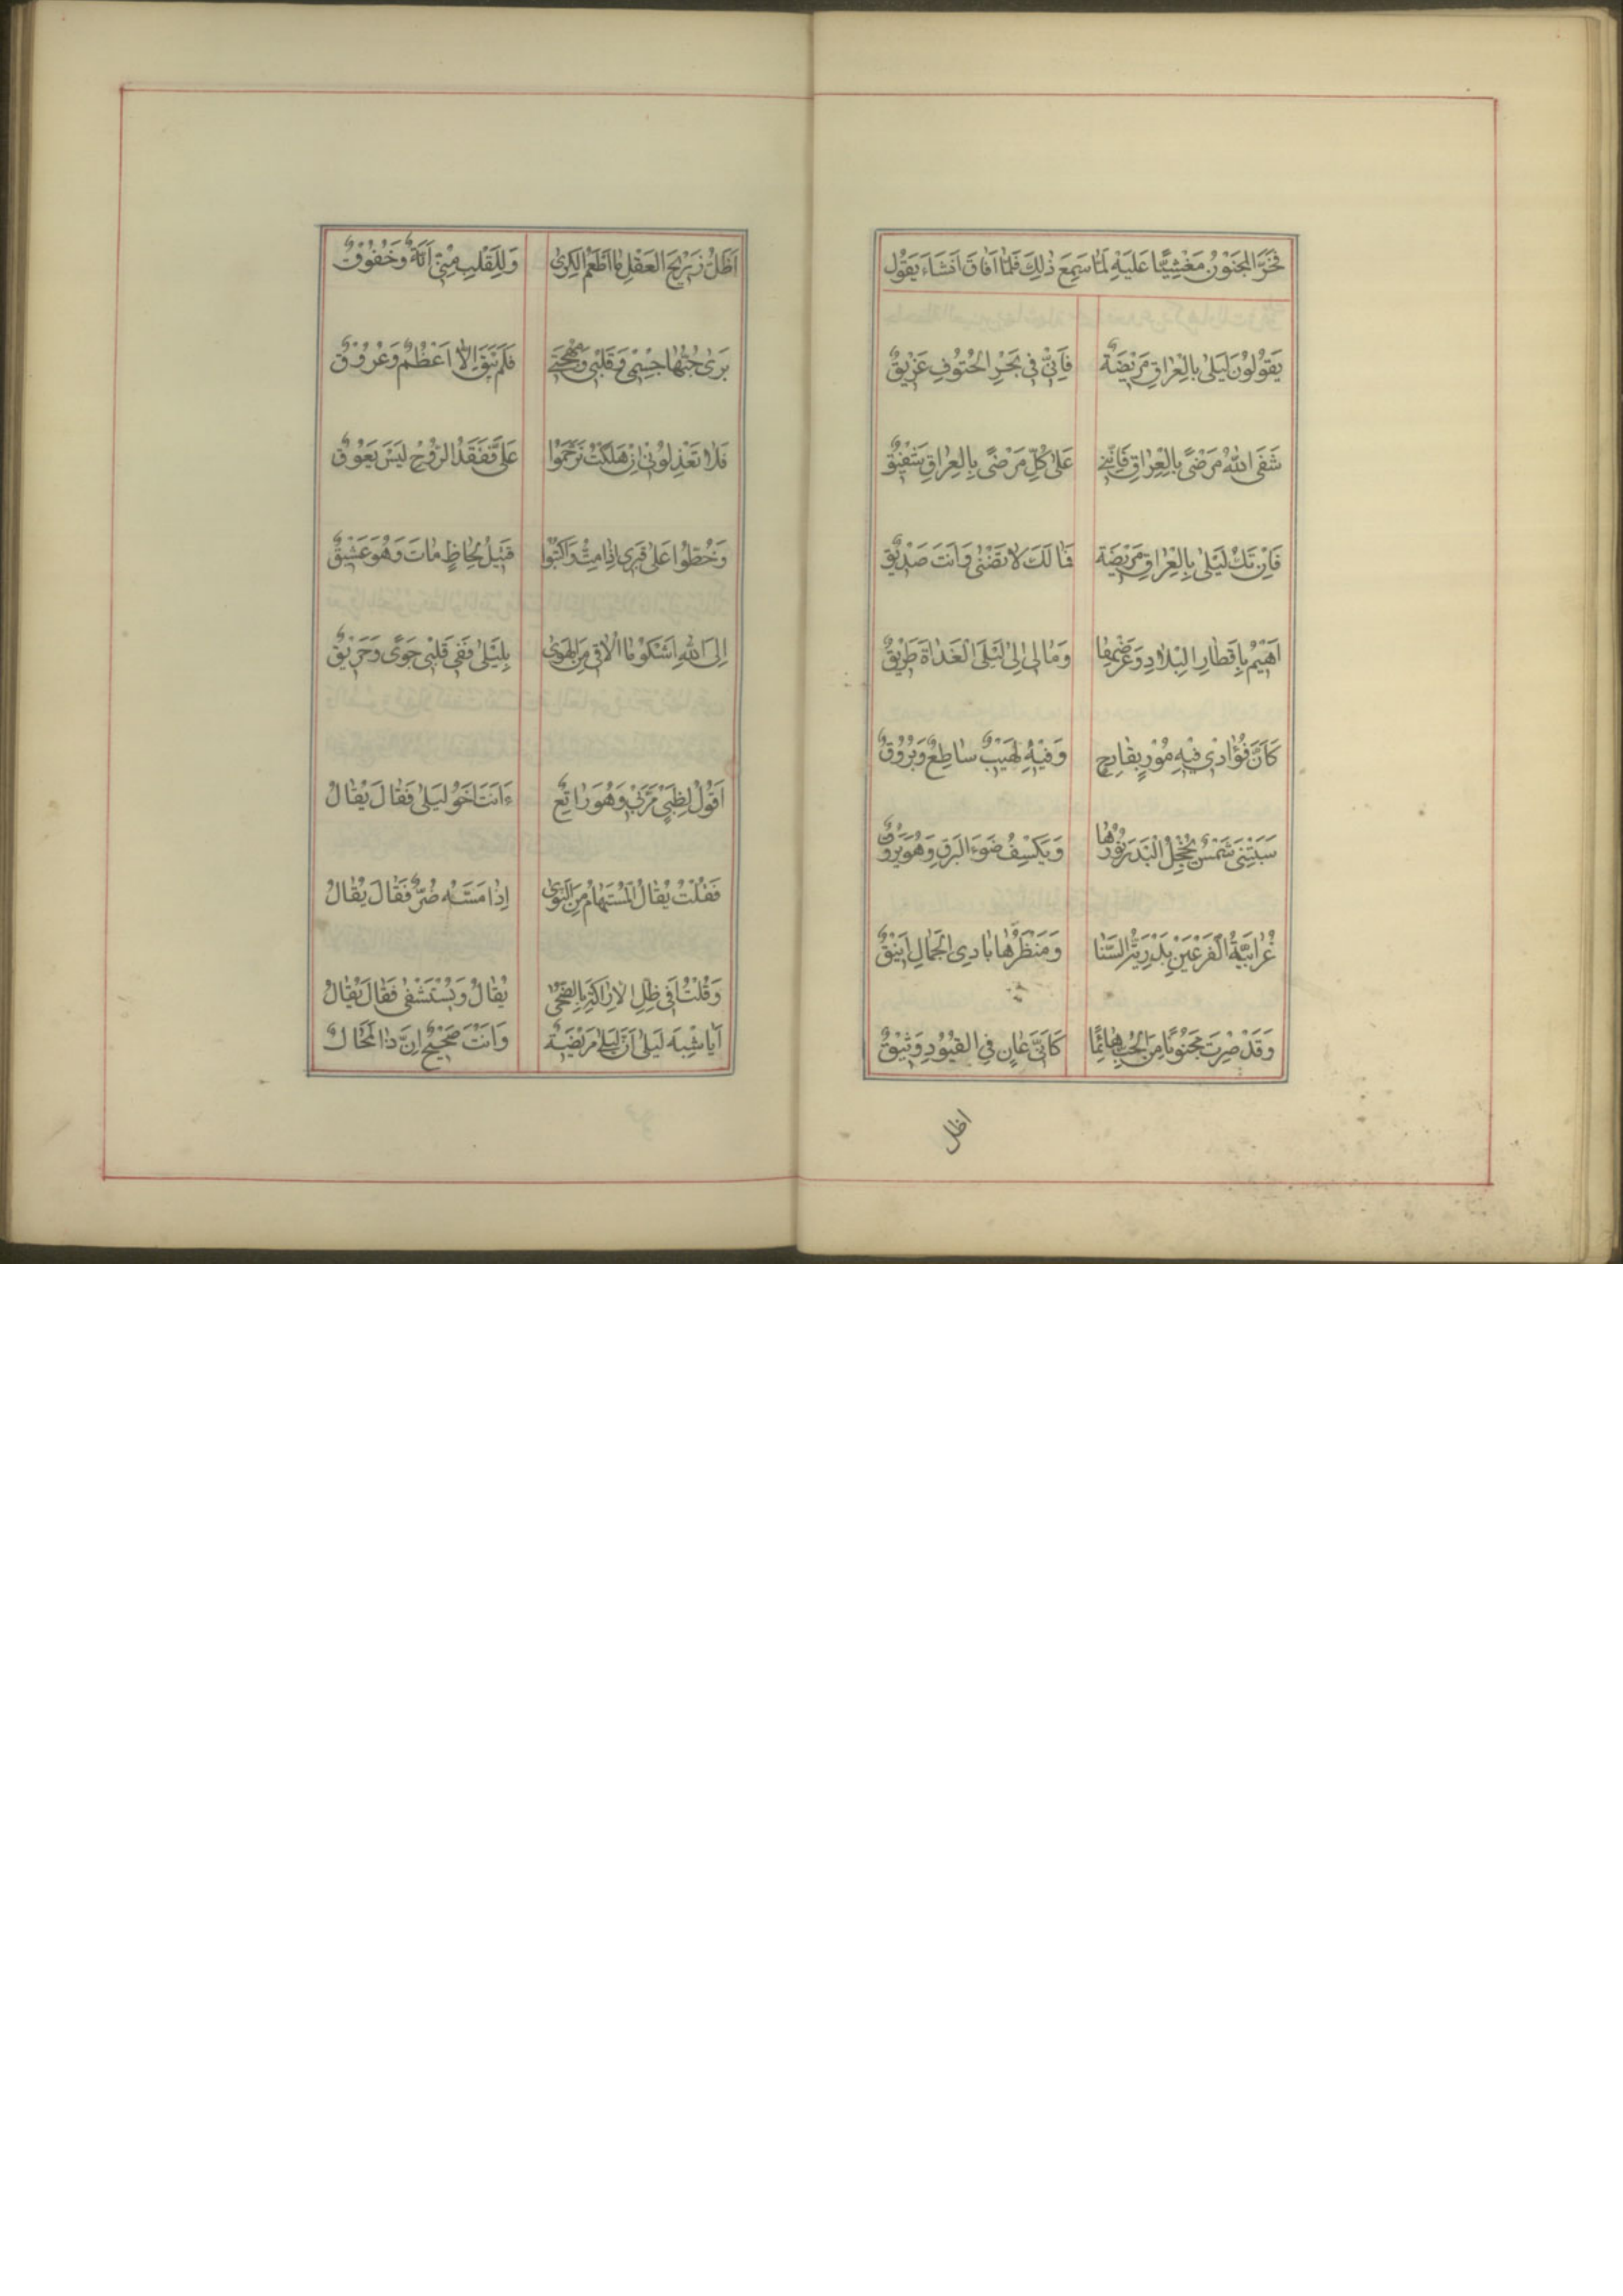 فَخَرَّ المَجْنُونُ مَغْشِيًّا عَلَيْهِ لَمَّا سَمِعَ ذٰلِكَ فَلَمَّا اَفَاقَ اَنْشَاءَ يَقُولُ
يَقُولُونَ لَيْلىٰ بِالْعِرٰاقِ مَرْيضَةٌ فَاِنّىٖ فىٖ بَحْرِ الْحُتُوفِ غَرْيقٌ
شَفَى اللهُ مَرْضىً بِالْعِرٰاقِ فَاِنَّنىٖ عَلىٰ كُلِّ مَرْضىً بِالْعِرٰاقِ شَفْيقٌ
فَاِنْ تَكُ لَيْلىٰ بِالْعِرٰاقِ مَرْيضَةً فَمٰا لَكَ لاٰ تَضْنىٰ وَاَنْتَ صَدْيقٌ
اَهْيمُ بِاَقْطٰارِ الْبِلاٰدِ وَعَرْضِهٰا وَمٰالىٖ اِلىٰ لَيْلَى الْغَدٰاةَ طَرْيقٌ
كَاَنَّ فُؤٰادىٖ فيٖهِ مُوْرٍ بِقٰادِحٍ وَفيٖهِ لَهيٖبٌ سٰاطِعٌ وَبُرُوقٌ
سَبَتْنىٖ شَمْسٌ يُخْجِلُ الْبَدْرَ نُورُهٰا وَيَكْسِفُ ضَوْءَ الْبَرْقِ وَهُوَ بَرُوقٌ
غُرٰابِيَّةُ الْفَرْعَيْنِ بَدْرِيَّةُ السَّنٰا وَمَنْظَرُهٰا بٰادِى الْجَمٰالِ اَنيٖقٌ
وَقَدْ صِرْتُ مَجْنُونًا مِنَ الْحُبِّ هٰائِمًا كَاَنّىٖ عٰانٍ فِي الْقُيُودِ وَثيٖقٌ
اظل
اَظَلُّ رَزيٖحَ الْعَقْلِ مٰا اَطْعَمُ الْكَرىٰ وَلِلْقَلْبِ مِنّىٖ اَنَّةٌ وَخُفُوقٌ
بَرىٰ حُبُّهٰا جِسْمىٖ وَقَلْبىٖ وَمُهْجَتىٖ فَلَمْ يَبْقَ اِلاّٰ اَعْظُمٌ وَعُرُوقٌ
فَلاٰ تَعْذِلُونىٖ اِنْ هَلَكْتُ تَرَحَّمُوا عَلَىَّ فَفَقْدُ الرُّوحِ لَيْسَ يَعُوقُ
وَخُطُّوا عَلىٰ قَبْرىٖ اِذٰا مِتُّ وَاكْتُبُوا قَتيٖلُ لِحٰاظٍ مٰاتَ وَهُوَ عَشيٖقٌ
اِلَى اللهِ اَشْكُو مٰا اُلاٰقىٖ مِنَ الْهَوىٰ بِلَيْلىٰ فَفىٖ قَلْبىٖ جَوىً وَحَرْيقٌ
اَقُولُ لِظَبْىٍ مَرَّبىٖ وَهُوَ رٰاتِعٌ ءَاَنْتَ اَخُو لَيْلىٰ فَقٰالَ يُقٰالُ
فَقُلْتُ يُقٰالُ الْمُسْتَهٰامُ مِنَ النَّوىٰ اِذٰا مَسَّهُ ضُرٌّ فَقٰالَ يُقٰالُ
وَقُلْتُ اَفىٖ ظِلِّ الْاَرٰاكَةِ بِالضُّحىٰ يُقٰالُ وَيُسْتَشْفىٰ فَقٰالَ يُقٰالُ
اَيٰا شِبْهَ لَيْلىٰ اِنَّ لَيْلىٰ مَرْيضَةٌ وَاَنْتَ صَحيٖحٌ اِنَّ ذٰا لَمُحٰالٌ